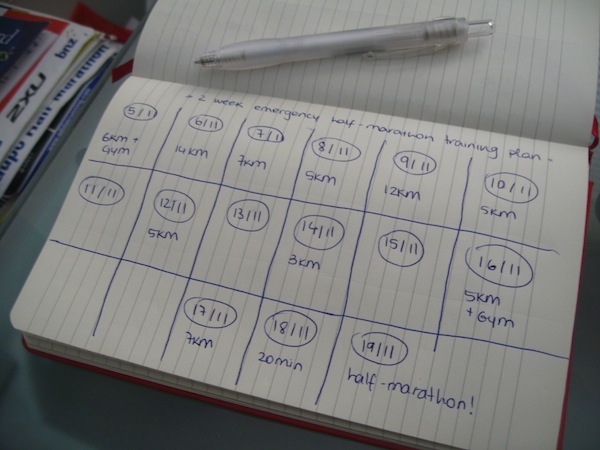 2XU
bnz
half marathon
- 2 week emergency half-marathon training plan -
5/11
6km +
Gym
6/11
14km
7/11
7km
8/11
5km
9/11
12km
10/11
5km
11/11
12/11
5km
13/11
14/11
3km
15/11
16/11
5km
+ Gym
17/11
7km
18/11
20min
19/11
half-marathon!